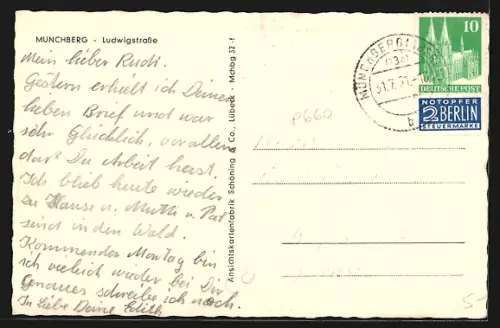 MÜNCHBERG - Ludwigstraße
Mein lieber Rudi.
Gestern erhielt ich Deinen
lieben Brief und war
sehr Glücklich, vor allem
das? Du Arbeit hast.
Ich blieb heute wieder
zu Hause u. Mutti u. Pat
sind in den Wald.
Kommenden Montag bin
ich vielleicht wieder bei Dir
Genauer schreibe ich noch.
In Liebe Deine Edith
Ansichtskartenfabrik Schöning & Co., Lübeck - Mchbg 37 f
MÜNCHBERG
(13a)
31.7.51
b
10
DEUTSCHE POST
NOTOPFER
2 BERLIN
STEUERMARKE
P660
5-